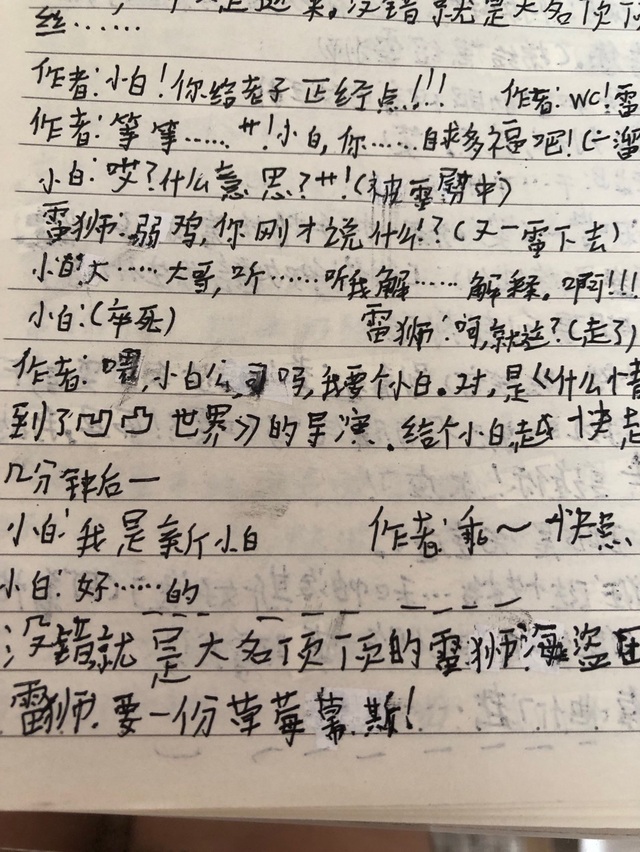 走过来。没错就是大名顶顶
丝……
作者:小白!你给老子正经点!!! 作者:WC!雷
作者:等等……艹!小白,你……自求多福吧!(一溜
小白:哎?什么意思?艹!(被雷劈中)
雷狮:弱鸡,你刚才说什么!?(又一雷下去)
小白:大……大哥,听……听我解……解释。啊!!!
小白:(卒死) 雷狮:呵,就这?(走了)
作者:喂,小白公司吗,我要个小白。对,是《什么
到了凹凸世界》的导演。给个小白,越快
几分钟后一
小白:我是新小白 作者:乖~快点
小白:好……的
没错就是大名顶顶的雷狮海盗团
雷狮.要一份草莓慕斯!